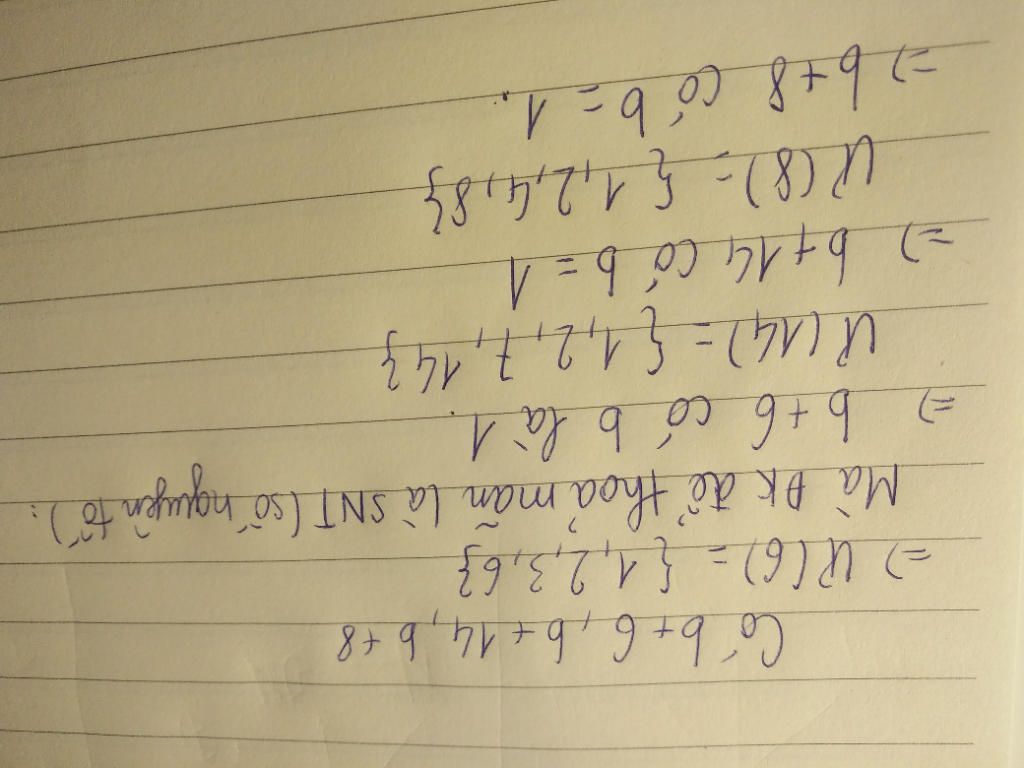 Có b+6, b+14, b+8
=> Ư(6) = {1,2,3,6}
Mà ĐK để thoả mãn là SNT (số nguyên tố):
=> b+6 có b là 1.
Ư(14) = {1,2,7,14}
=> b+14 có b = 1
Ư(8) = {1,2,4,8}
=> b+8 có b = 1.